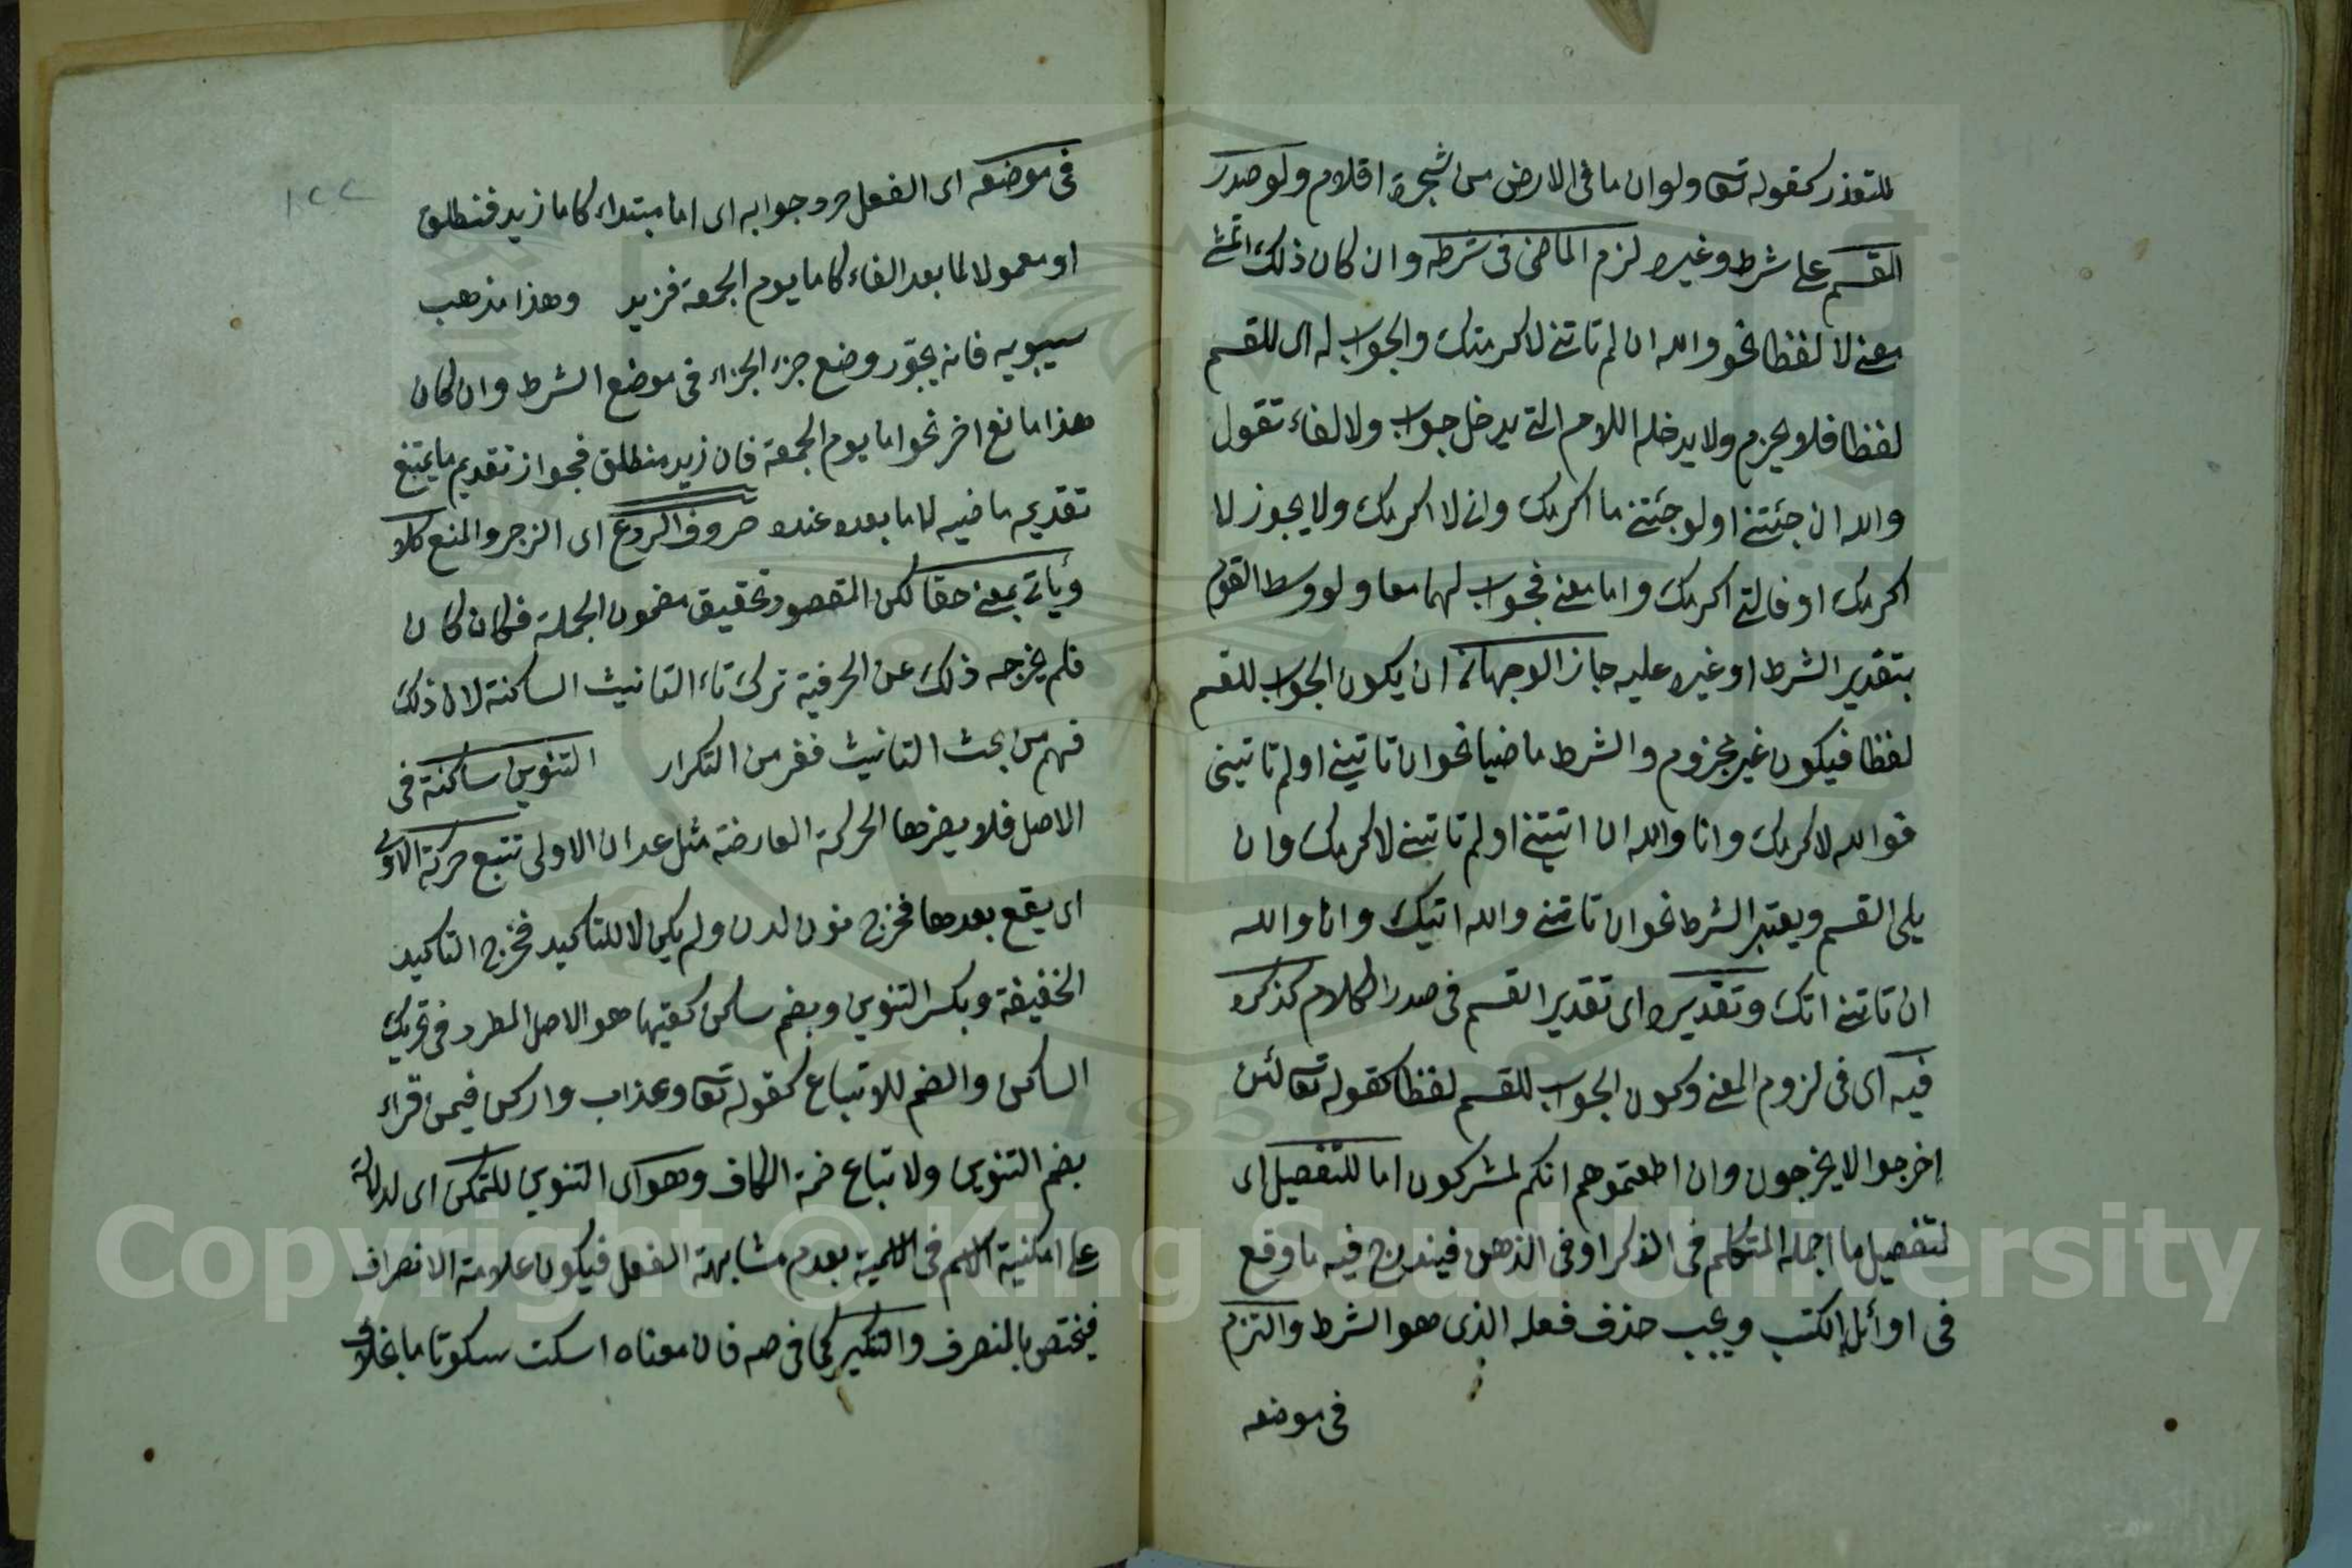 للتعذر كقوله تع ولو ان ما فى الارض من شجرة اقلام ولو صدر
القسم على شرط وغيره لزم الماضى فى شرطه وان كان ذلك
معنى لا لفظا نحو والله ان لم تاتنى لاكرمتك والجواب له اى للقسم
لفظا فلا يجزم ولا يدخله اللام التى يدخل جواب ولا لفاء تقول
والله ان جئتنى او لو جئتنى ما اكرمك وانى لا اكرمك ولا يجوز لا
اكرمك او فانى اكرمك واما معنى فجواب لهما معا ولو وسط القسم
بتقدير الشرط او غيره عليه جاز الوجهان ان يكون الجواب للقسم
لفظا فيكون غير مجزوم والشرط ماضيا نحو ان تاتينى او لم تاتينى
فوالله لاكرمك وانا والله ان اتيتنى او لم تاتينى لاكرمك وان
يلى القسم ويعتبر الشرط نحو ان تاتنى والله اتيك وانا والله
ان تاتنى اتك وتقديره اى تقدير القسم فى صدر الكلام كذكره
فيه اى فى لزوم المعنى وكون الجواب للقسم لفظا كقوله تع لئن
اخرجوا لا يخرجون وان اطعتموهم انكم لمشركون اما للتفصيل اى
لتفصيل ما اجمله المتكلم فى الذكر او فى الذهن فيندرج فيه ما وقع
فى اوائل الكتب ويجب حذف فعله الذى هو الشرط والتزم
فى موضعه
١٢٢
فى موضعه اى الفعل جزء جوابه اى اما مبتداء كاما زيد فمنطلق
او معمولا لما بعد الفاء كاما يوم الجمعة فزيد وهذا مذهب
سيبويه فانه يجوّز وضع جزء الجزاء فى موضع الشرط وان كان
هذا مانع اخر نحو اما يوم الجمعة فان زيد منطلق فجواز تقديم ما يمتنع
تقديمه ما فيه لاما بعده عنده حروف الردع اى الزجر والمنع كلا
وياتى بمعنى حقا لكن المقصود تحقيق مضمون الجملة فكان كان
فلم يخرجه ذلك عن الحرفية ترك تاء التانيث الساكنة لان ذلك
فهم من بحث التانيث ففر من التكرار التنوين ساكنة فى
الاصل فلا يضرها الحركة العارضة مثل عدان الاولى تتبع حركة الاخر
اى يقع بعدها فخرج نون لدن ولم يكن لا للتاكيد فخرج التاكيد
الخفيفة وبكسر التنوين وبضم ساكن كقيها هو الاصل المطرد فى تحريك
الساكن والضم للاتباع كقوله تع وعذاب واركض فيمن قراء
بضم التنوين ولا تباع ضمة الكاف وهو اى التنوين للتمكن اى لدلالة
على امكنية الاسم فى الاسمية بعدم مشابهة الفعل فيكون علامة الانصراف
فيختص بالمنصرف والتنكير كما فى صه فان معناه اسكت سكوتا ما بخلاف
Copyright © King Saud University
1957